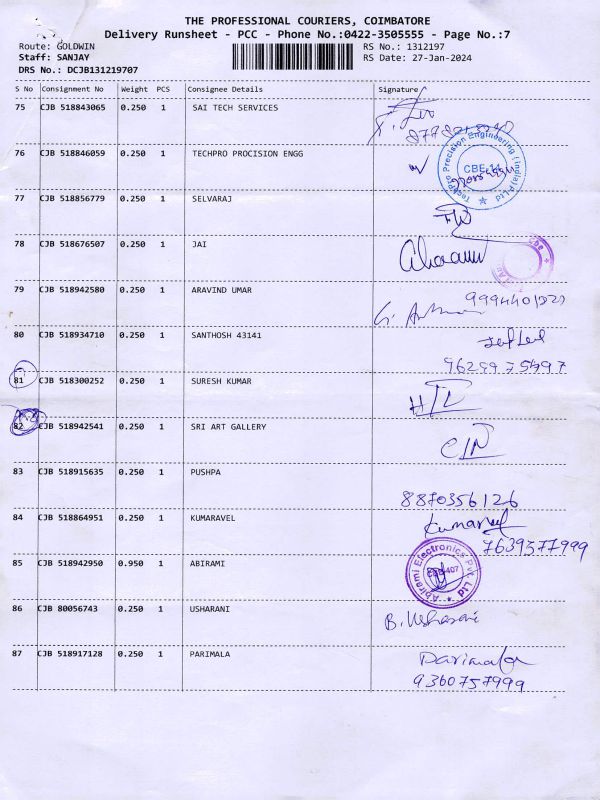 THE PROFESSIONAL COURIERS, COIMBATORE
Delivery Runsheet - PCC - Phone No.:0422-3505555 - Page No.:7
Route: GOLDWIN RS No.: 1312197
Staff: SANJAY RS Date: 27-Jan-2024
DRS No.: DCJB131219707
S No Consignment No Weight PCS Consignee Details Signature
75 CJB 518843065 0.250 1 SAI TECH SERVICES
76 CJB 518846059 0.250 1 TECHPRO PROCISION ENGG
TechPro Precision Engineering (India) P Ltd
CBE-14
77 CJB 518856779 0.250 1 SELVARAJ
78 CJB 518676507 0.250 1 JAI
79 CJB 518942580 0.250 1 ARAVIND UMAR
80 CJB 518934710 0.250 1 SANTHOSH 43141
81 CJB 518300252 0.250 1 SURESH KUMAR
82 CJB 518942541 0.250 1 SRI ART GALLERY
83 CJB 518915635 0.250 1 PUSHPA
8870356126
84 CJB 518864951 0.250 1 KUMARAVEL Kumaravel
7639577999
85 CJB 518942950 0.950 1 ABIRAMI
Abirami Electronics Pvt. Ltd
86 CJB 80056743 0.250 1 USHARANI B. Usharani
87 CJB 518917128 0.250 1 PARIMALA Parimala
9360757999